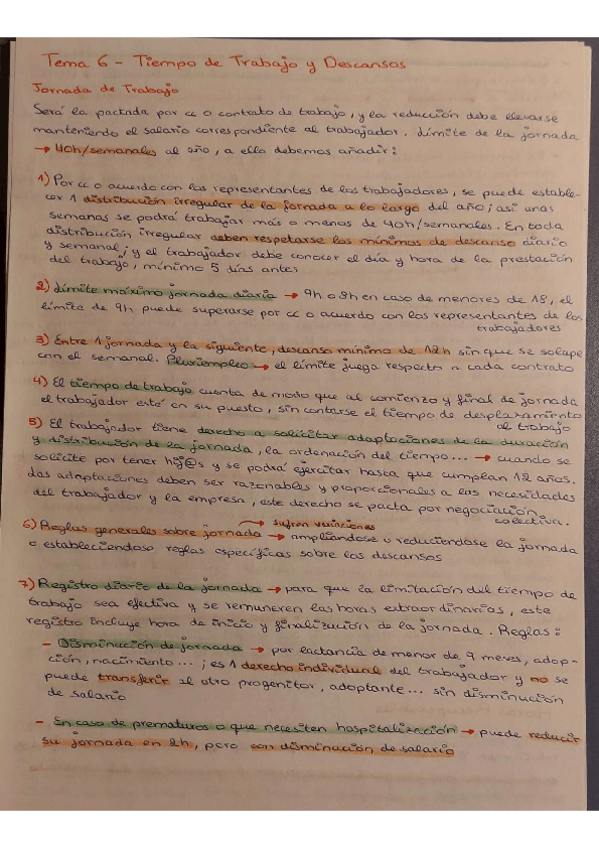 Tema 6 - Tiempo de Trabajo y Descansos
Jornada de Trabajo
Será la pactada por cc o contrato de trabajo, y la reducción debe llevarse
manteniendo el salario correspondiente al trabajador. Límite de la jornada
→ 40h/semanales al año, a ello debemos añadir:
1) Por cc o acuerdo con los representantes de los trabajadores, se puede estable-
cer 1 distribución irregular de la jornada a lo largo del año; así unas
semanas se podrá trabajar más o menos de 40h/semanales. En toda
distribución irregular deben respetarse los mínimos de descanso diario
y semanal; y el trabajador debe conocer el día y hora de la prestación
del trabajo, mínimo 5 días antes
2) Límite máximo jornada diaria → 9h o 8h en caso de menores de 18, el
límite de 9h puede superarse por cc o acuerdo con los representantes de los
trabajadores
3) Entre 1 jornada y la siguiente, descanso mínimo de 12h sin que se solape
con el semanal. Pluriempleo → el límite juega respecto a cada contrato
4) El tiempo de trabajo cuenta de modo que al comienzo y final de jornada
el trabajador esté en su puesto, sin contarse el tiempo de desplazamiento
al trabajo
5) El trabajador tiene derecho a solicitar adaptaciones de la duración
y distribución de la jornada, la ordenación del tiempo... → cuando se
solicite por tener hij@s y se podrá ejercitar hasta que cumplan 12 años.
das adaptaciones deben ser razonables y proporcionales a las necesidades
del trabajador y la empresa, este derecho se pacta por negociación
colectiva.
6) Reglas generales sobre jornada → sufren variaciones → ampliándose o reduciéndose la jornada
o estableciéndose reglas específicas sobre los descansos
7) Registro diario de la jornada → para que la limitación del tiempo de
trabajo sea efectiva y se remuneren las horas extraordinarias, este
registro incluye hora de inicio y finalización de la jornada. Reglas:
- Disminución de jornada → por lactancia de menor de 9 meses, adop-
ción, nacimiento... ; es 1 derecho individual del trabajador y no se
puede transferir al otro progenitor, adoptante... sin disminución
de salario
- En caso de prematuros o que necesiten hospitalización → puede reducir
su jornada en 2h, pero con disminución de salario